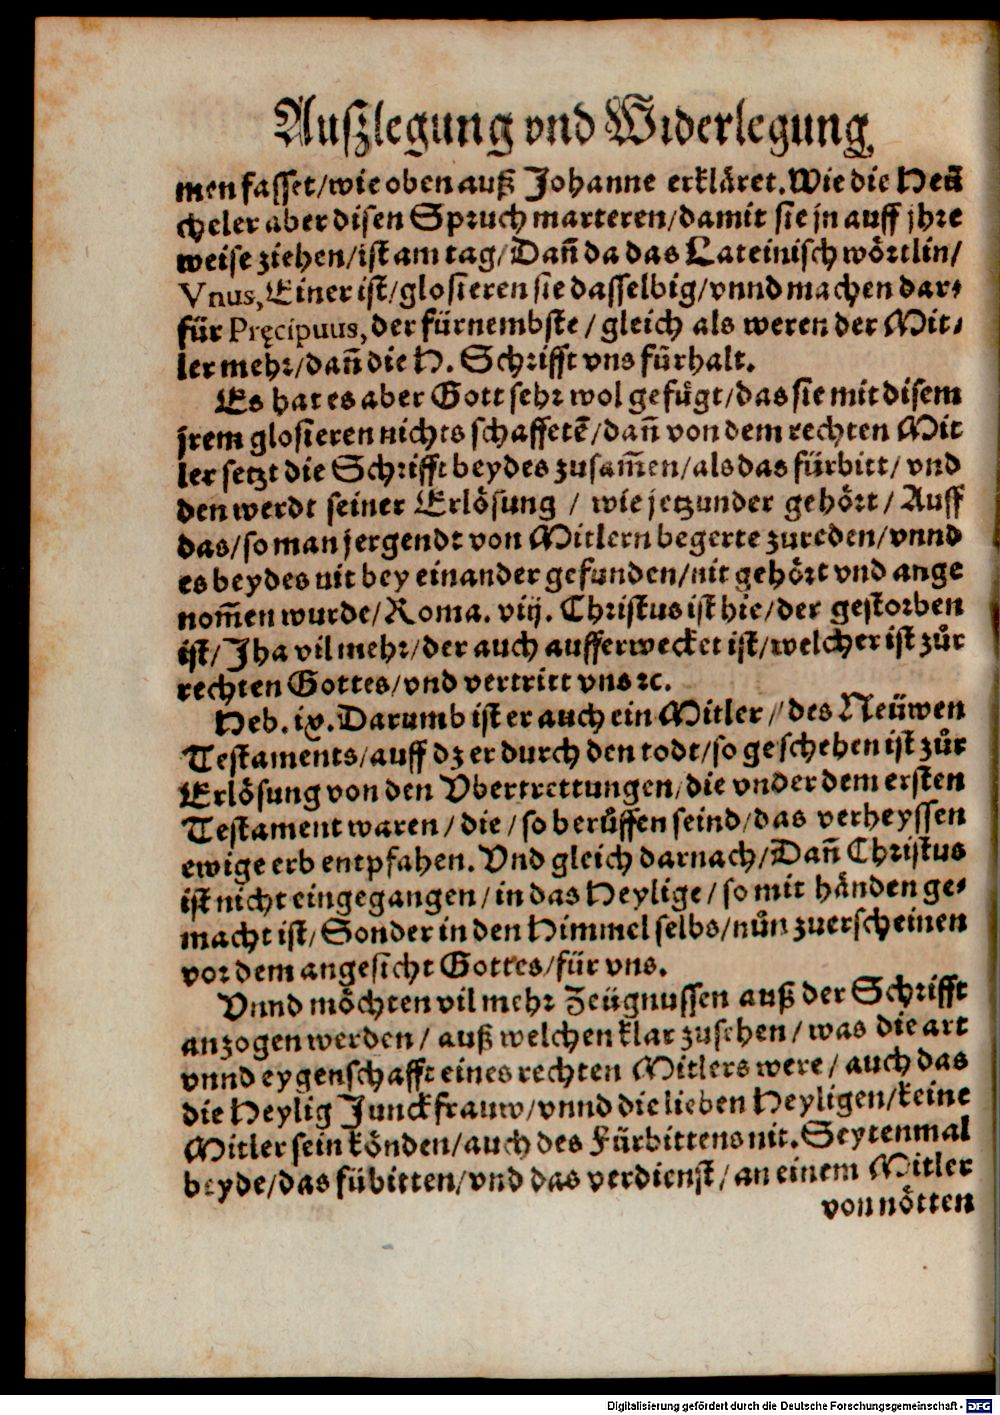 Auſzlegung vnd Widerlegung
men faſſet/wie oben auß Johanne erkläret. Wie die Heü
cheler aber diſen Spruch marteren/damit ſie jn auff jhre
weiſe ziehen/iſt am tag/Dañ da das Lateiniſch wörtlin/
Vnus, Einer iſt/gloſieren ſie daſſelbig/vnnd machen dar⸗
für Pręcipuus, der fürnembſte/gleich als weren der Mit⸗
ler mehr/dañ die H. Schrifft vns fürhalt.
Es hat es aber Gott ſehr wol gefügt/das ſie mit diſem
jrem gloſieren nichts ſchaffetẽ/dañ von dem rechten Mit
ler ſetzt die Schrifft beydes zuſam̃en/als das fürbitt/vnd
den werdt ſeiner Erlöſung / wie jetzunder gehört/ Auff
das/ſo man jergendt von Mitlern begerte zureden/vnnd
es beydes nit bey einander gefunden/nit gehört vnd ange
nom̃en wurde/Roma. viij. Chriſtus iſt hie/der geſtorben
iſt/ Jha vil mehr/der auch aufferwecket iſt/welcher iſt zůr
rechten Gottes/vnd vertritt vns ꝛc.
Heb. ix. Darumb iſt er auch ein Mitler/ des Neüwen
Teſtaments/auff dz er durch den todt/ſo geſchehen iſt zůr
Erlöſung von den Vbertrettungen/die vnder dem erſten
Teſtament waren/die/ſo berůffen ſeind/das verheyſſen
ewige erb entpfahen. Vnd gleich darnach/Dañ Chriſtus
iſt nicht eingegangen/in das Heylige/ſo mit händen ge⸗
macht iſt/Sonder in den Himmel ſelbs/nůn zuerſcheinen
vor dem angeſicht Gottes/für vns.
Vnnd möchten vil mehr Zeügnuſſen auß der Schrifft
anzogen werden/ auß welchen klar zuſehen/was die art
vnnd eygenſchafft eines rechten Mitlers were/ auch das
die Heylig Junckfrauw/vnnd die lieben Heyligen/keine
Mitler ſein könden/auch des Fürbittens nit. Seytenmal
beyde/das fübitten/vnd das verdienſt/an einem Mitler
von nötten
Digitalisierung gefördert durch die Deutsche Forschungsgemeinschaft - DFG